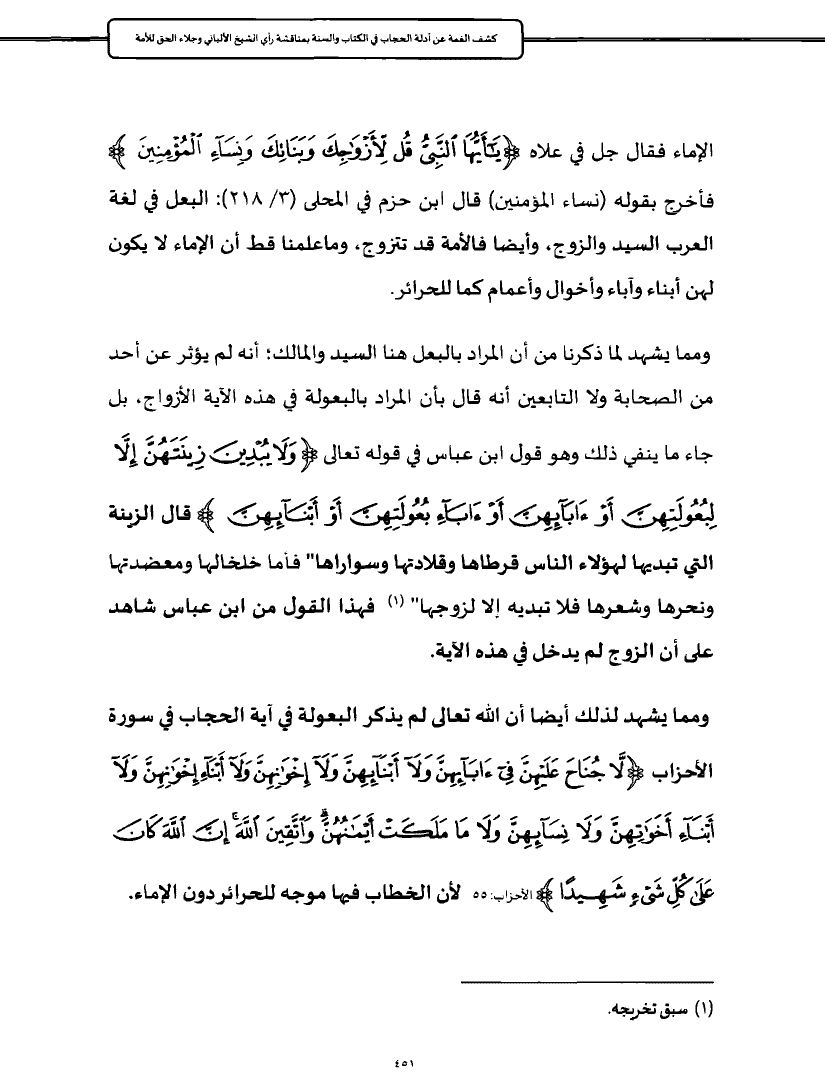 كشف الغمة عن أدلة الحجاب في الكتاب والسنة بمناقشة رأي الشيخ الألباني وجلاء الحق للأمة
الإماء فقال جل في علاه ﴿يَٰٓأَيُّهَا ٱلنَّبِيُّ قُل لِّأَزْوَٰجِكَ وَبَنَاتِكَ وَنِسَآءِ ٱلْمُؤْمِنِينَ ﴾
فأخرج بقوله (نساء المؤمنين) قال ابن حزم في المحلى (٣/ ٢١٨): البعل في لغة
العرب السيد والزوج، وأيضا فالأمة قد تتزوج، وماعلمنا قط أن الإماء لا يكون
لهن أبناء وآباء وأخوال وأعمام كما للحرائر.
ومما يشهد لما ذكرنا من أن المراد بالبعل هنا السيد والمالك؛ أنه لم يؤثر عن أحد
من الصحابة ولا التابعين أنه قال بأن المراد بالبعولة في هذه الآية الأزواج، بل
جاء ما ينفي ذلك وهو قول ابن عباس في قوله تعالى ﴿وَلَا يُبْدِينَ زِينَتَهُنَّ إِلَّا
لِبُعُولَتِهِنَّ أَوْ ءَابَآئِهِنَّ أَوْ ءَابَآءِ بُعُولَتِهِنَّ أَوْ أَبْنَآئِهِنَّ ﴾ قال الزينة
التي تبديها لهؤلاء الناس قرطاها وقلادتها وسواراها" فأما خلخالها ومعضدتها
ونحرها وشعرها فلا تبديه إلا لزوجها" (١) فهذا القول من ابن عباس شاهد
على أن الزوج لم يدخل في هذه الآية.
ومما يشهد لذلك أيضا أن الله تعالى لم يذكر البعولة في آية الحجاب في سورة
الأحزاب ﴿لَّا جُنَاحَ عَلَيْهِنَّ فِىٓ ءَابَآئِهِنَّ وَلَآ أَبْنَآئِهِنَّ وَلَآ إِخْوَٰنِهِنَّ وَلَآ أَبْنَآءِ إِخْوَٰنِهِنَّ وَلَآ
أَبْنَآءِ أَخَوَٰتِهِنَّ وَلَا نِسَآئِهِنَّ وَلَا مَا مَلَكَتْ أَيْمَٰنُهُنَّ ۗ وَٱتَّقِينَ ٱللَّهَ ۚ إِنَّ ٱللَّهَ كَانَ
عَلَىٰ كُلِّ شَىْءٍ شَهِيدًا ﴾ الأحزاب: ٥٥ لأن الخطاب فيها موجه للحرائر دون الإماء.
(١) سبق تخريجه.
٤٥١